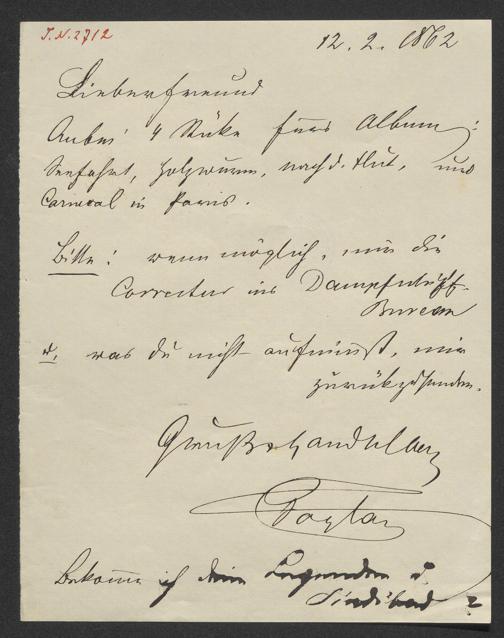 J.N. 2712
12. 2. 1862
Lieber Freund
Anbei 4 Stücke fürs Album:
Seefahrt, Holzwurm, nach d. Flut, und
Carneval in Paris.
Bitte! wenn möglich, mir die
Correctur ins Dampfschiff-
Bureau
u. was du nicht aufnimst, mir
zurükzusenden.
Gruß u. Handschlag
Bekomme ich dein Legenden u
Sindibad?